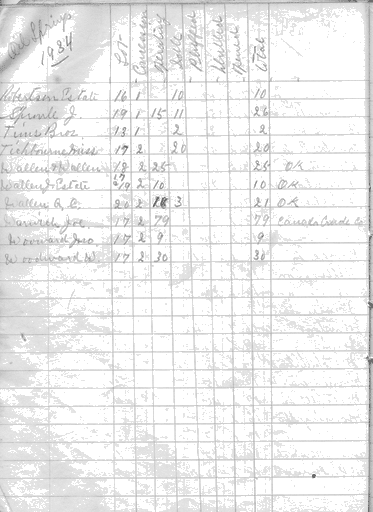 Oil Springs 1934
Lot Concession Pumping Idle Plugged Drilled Total
Robertson Estate 16 1 10 10
Sproule J 19 1 15 11 26
Tims Bros 13 1 2 2
Tichbourne Miss 17 2 20 20
Wallen & Wallen 18 2 25 25 OK
Wallen J Estate 17 19 2 10 10 OK
Wallen 20 2 18 3 21 OK
Warwick Joe 17 2 79 79 Canada Crude Co
Woodward Jno 17 2 9 9
Woodward W. 17 2 30 30